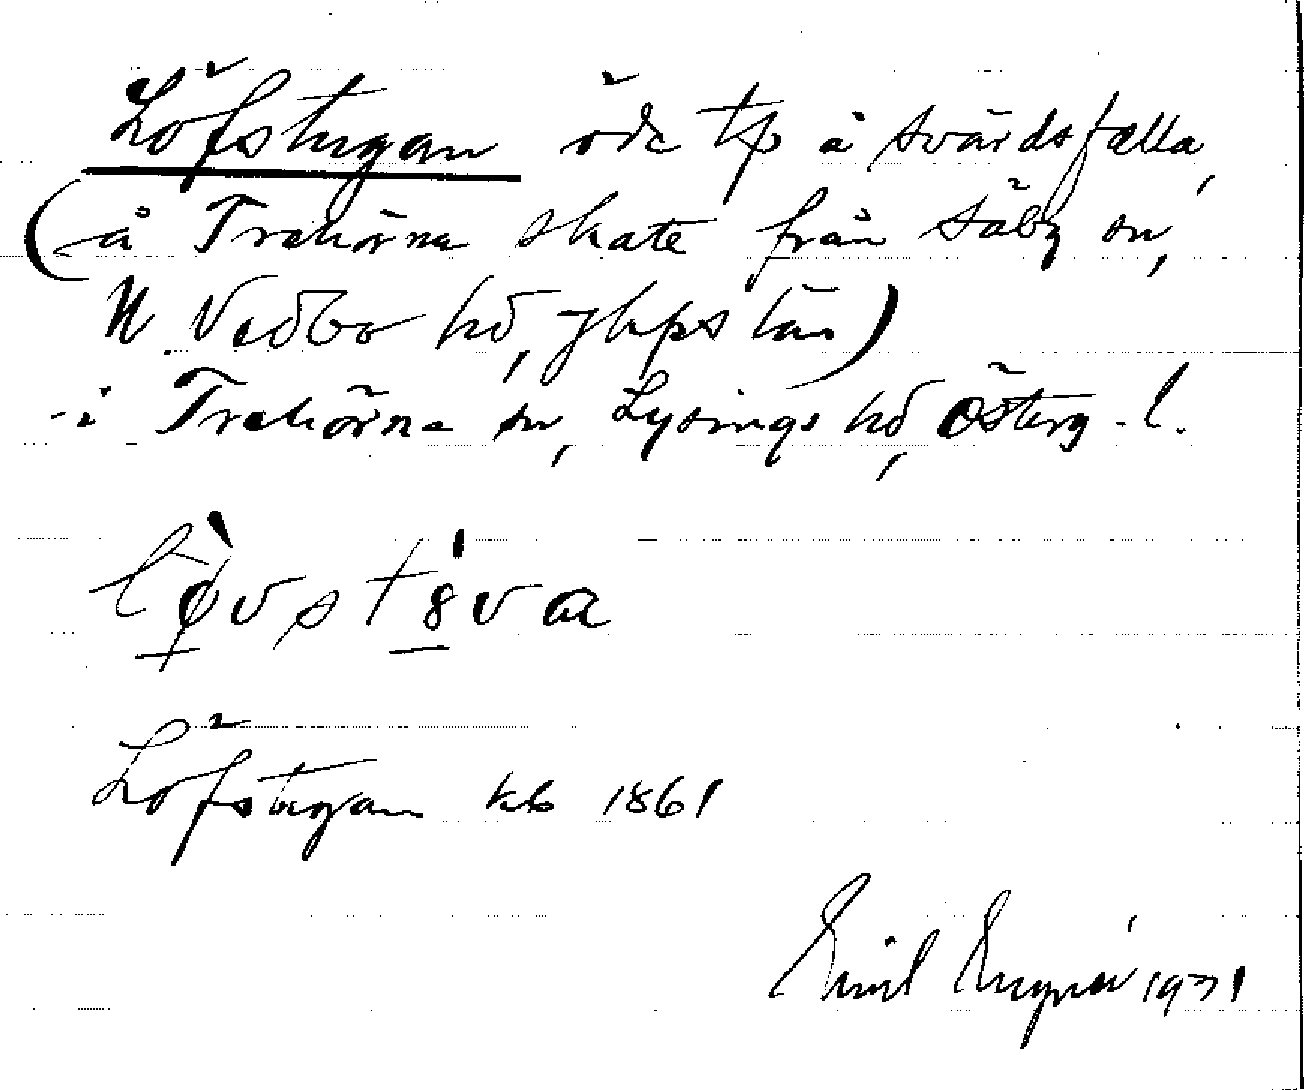 Löfstugan öde tp å Svärdsfälla,
(å Trehörna skate från Säby sn,
N. Vedbo hd, Jkps län)
- i Trehörna sn, Lysings hd, Österg.l.
Löfstugan kb 1861
Emil 1931